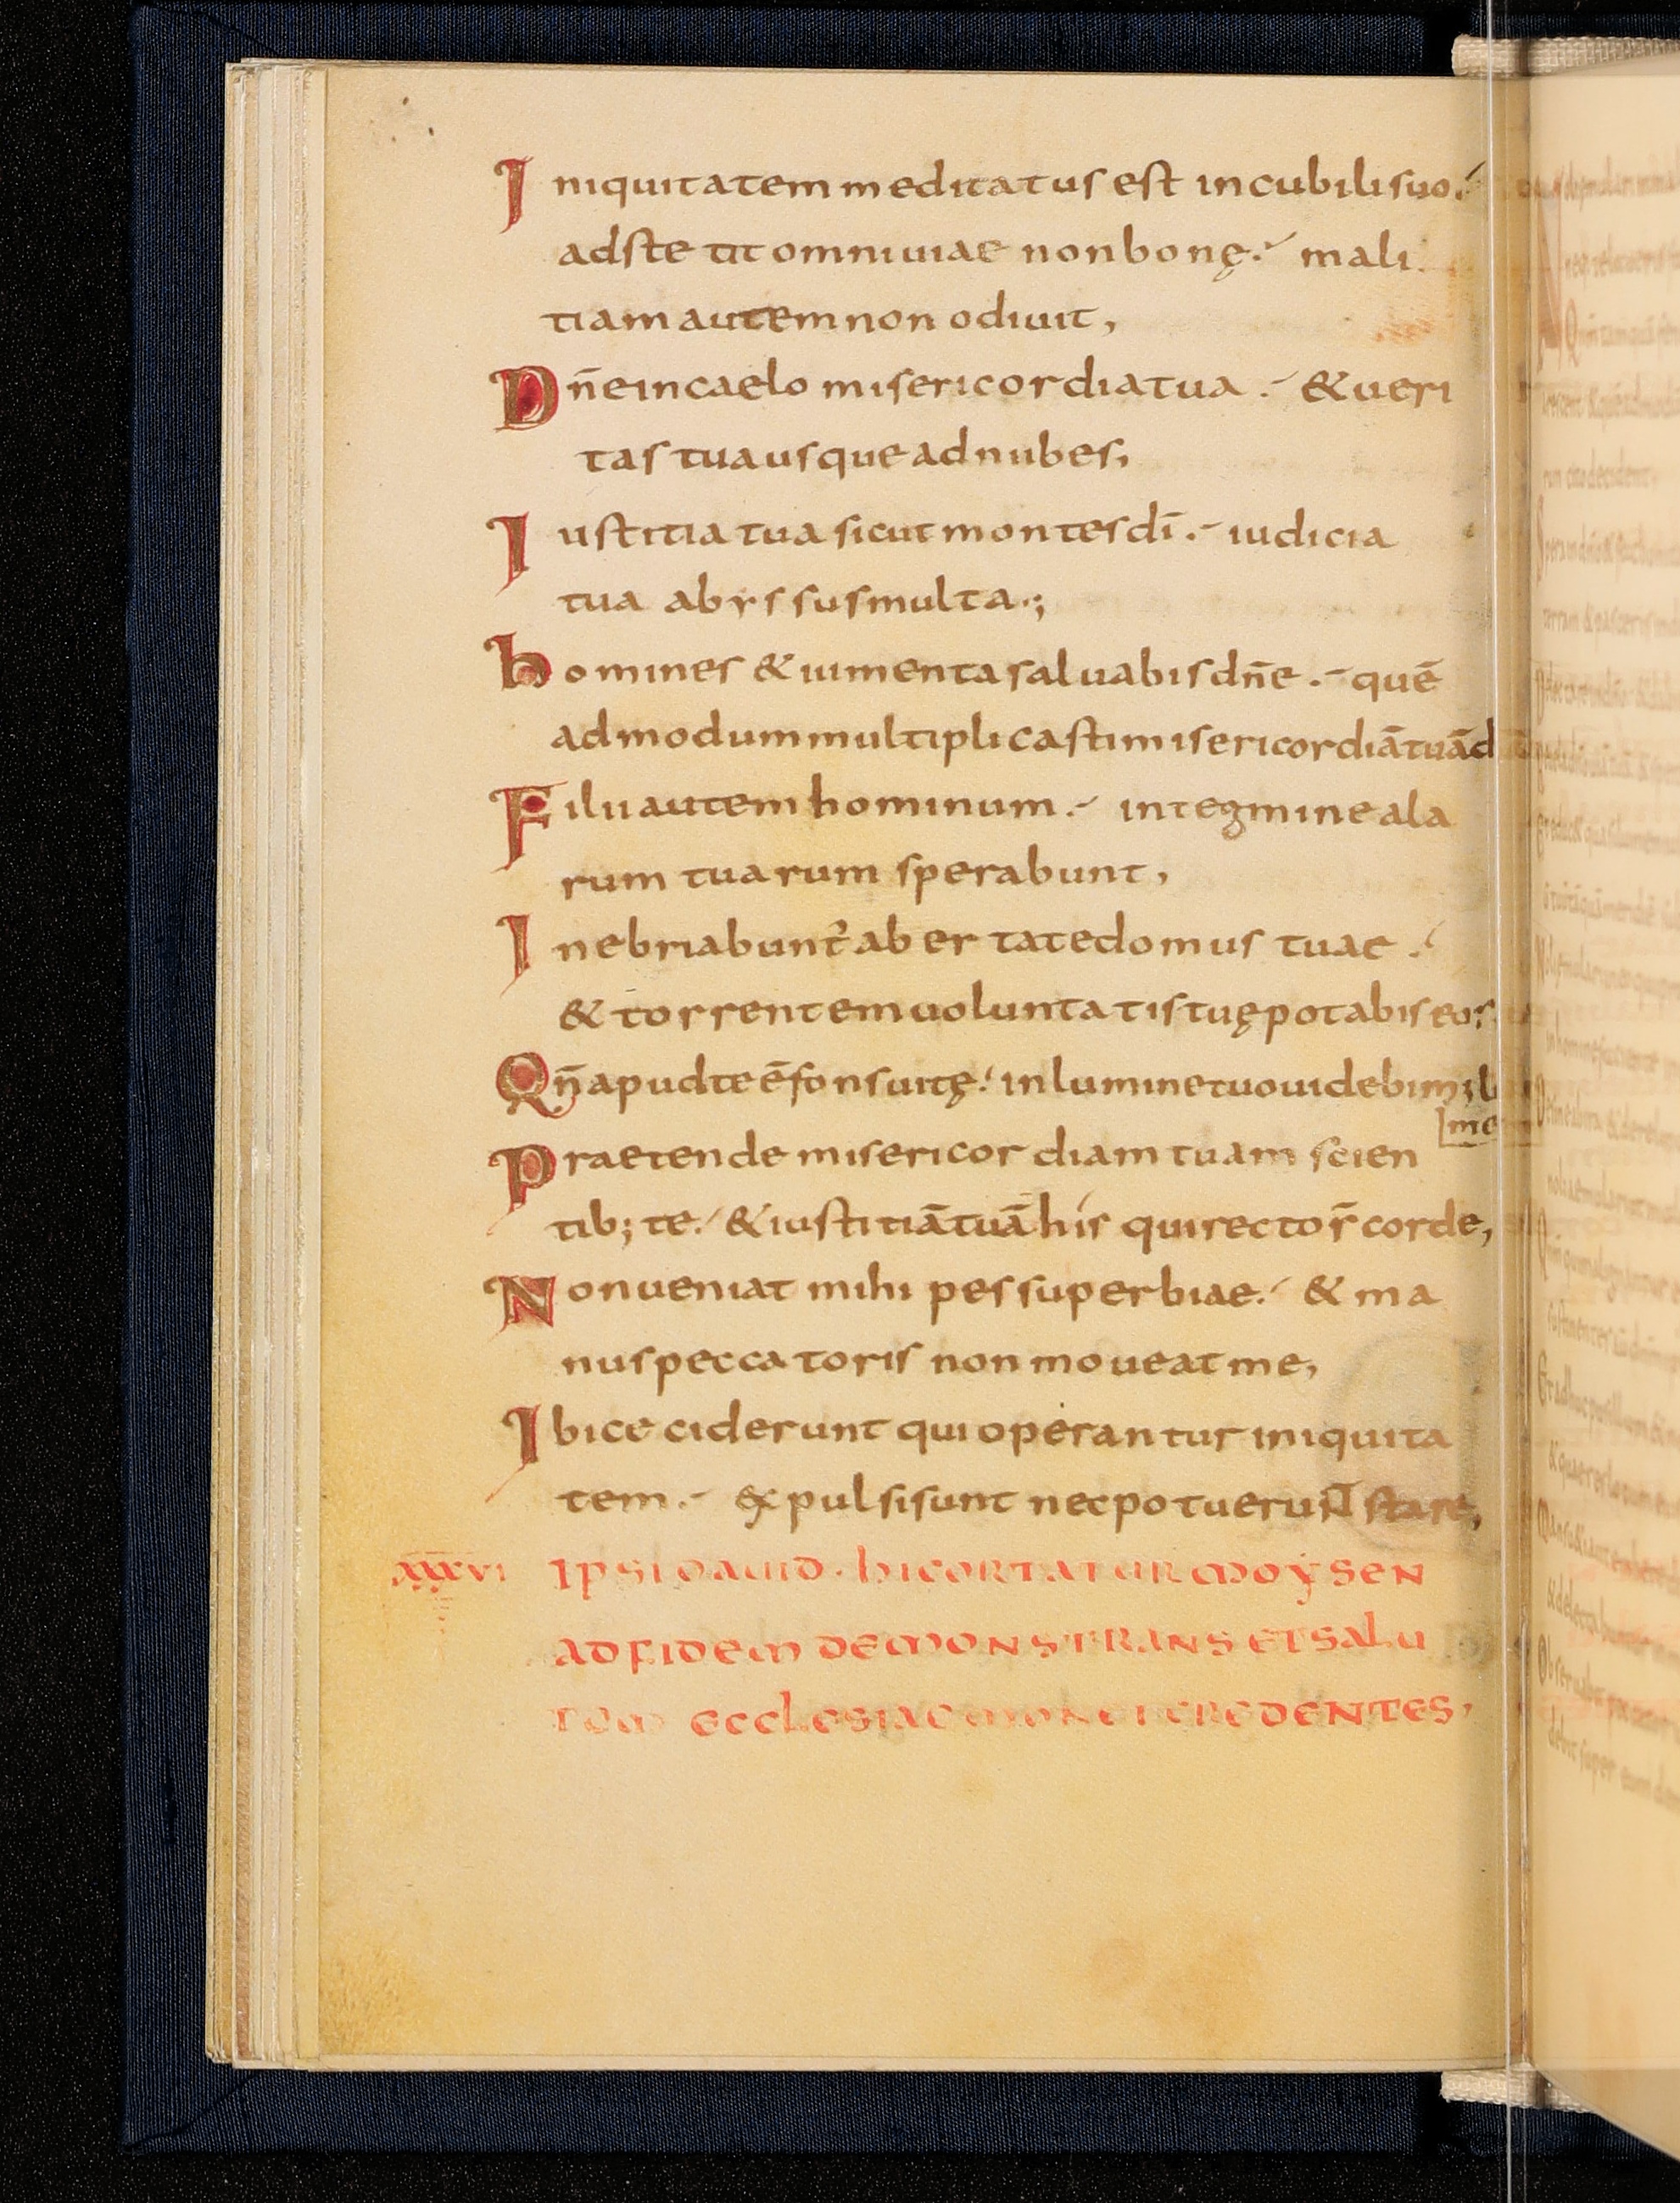 Iniquitatem meditatus est in cubili suo.
adste tit omni uiae non bonę. mali
tiam autem non odiuit,
Dn̄e in caelo misericordia tua . & ueri
tas tua usque ad nubes,
Iustitia tua sicut montes dī . iudicia
tua abyssus multa.;
homines & iumenta saluabis dn̄e . quē
admodum multiplicasti misericordiā tuā d
Filii autem hominum . in tegmine ala
rum tuarum sperabunt,
Inebriabunt̉ ab ertate domus tuae .
& torrentem uoluntatis tuę potabis eos
Qn̄ apud te ē fons uitę. in lumine tuo uidebim;
Praetende misericordiam tuam scien
tib; te. & iustitiā tuā hís qui recto sr̄ corde,
Non ueniat mihi pes superbiae. & ma
nus peccatoris non moueat me,
Ibi ceciderunt qui operantur iniquita
tem . expulsi sunt nec potuerunt stare,
xxxvi IPSI DAUID . hICORTATUR MOYSEN
AD FIDEM DEMONSTRANS ET SALU
TEM ECCLESIAE MONET CREDENTES,